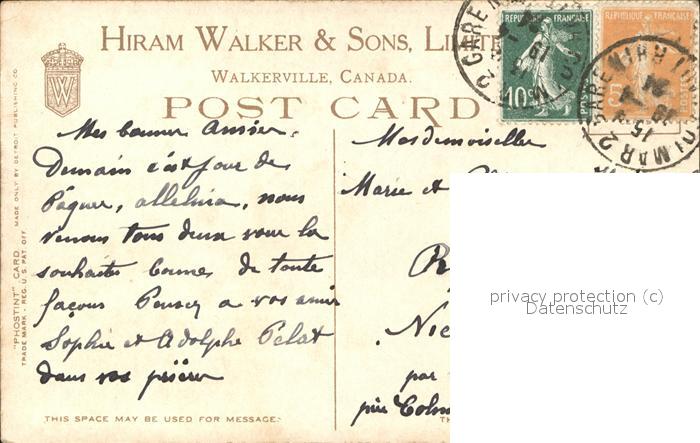 HIRAM WALKER & SONS, LIMITE
WALKERVILLE, CANADA.
POST CARD
W
"PHOSTINT" CARD MADE ONLY BY DETROIT PUBLISHING CO.
TRADE MARK - REG. U.S. PAT. OFF.
RÉPUBLIQUE FRANÇAISE
10c
POSTES
RÉPUBLIQUE FRANÇAISE
POSTES
GARE
GARE
15
Mes bonnes Amies.
Demain c'est jour de
Pâques, alleluia, nous
venons tous deux vous la
souhaiter bonnes de toute
façons Pensez a vos amis
Sophie et Adolphe Pelat
dans vos prières
Mesdemoiselles
Marie et
R
Nie
par
près Colm
privacy protection (c)
Datenschutz
THIS SPACE MAY BE USED FOR MESSAGE.
TH